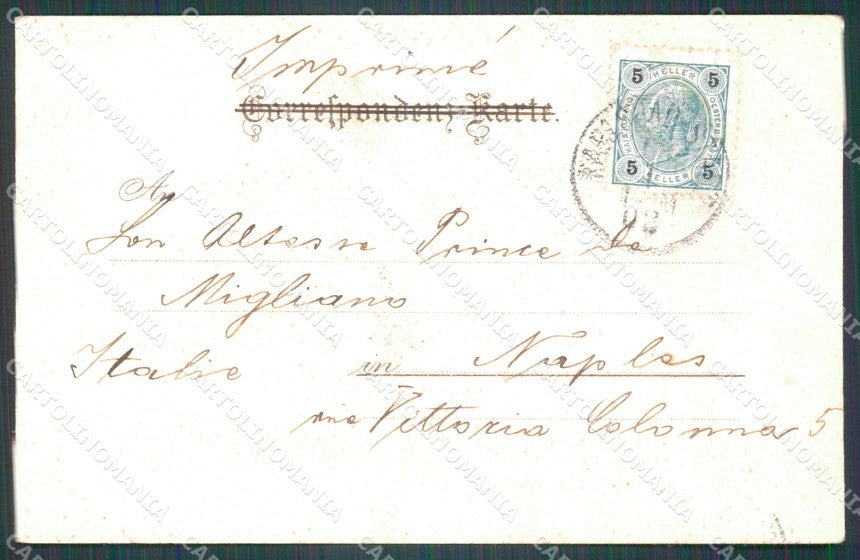 Imprimé
Correspondenz-Karte.
5 HELLER 5
5 HELLER 5
02
An
Son Altesse Prince de
Migliano
Italie in Naples
via Vittoria Colonna 5
CARTOLINOMANIA